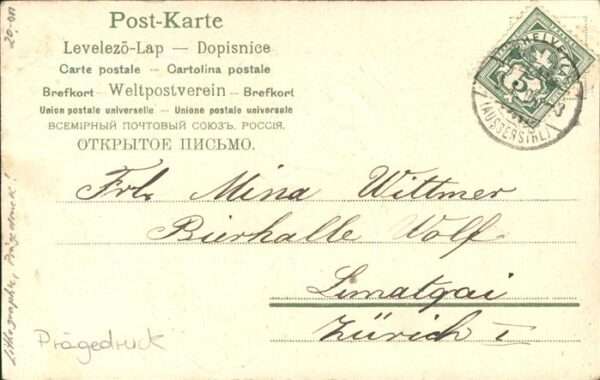 Post-Karte
Levelezõ-Lap — Dopisnice
Carte postale — Cartolina postale
Brefkort — Weltpostverein — Brefkort
Union postale universelle — Unione postale universale
ВСЕМІРНЫЙ ПОЧТОВЫЙ СОЮЗЪ. РОССІЯ.
ОТКРЫТОЕ ПИСЬМО.
HELVETIA
5
(AUSSERSIHL)
Frl. Mina Wittmer
Bierhalle Wolf
Limatqai
Zürich I
Prägedruck
Lithographie, Prägedruck!